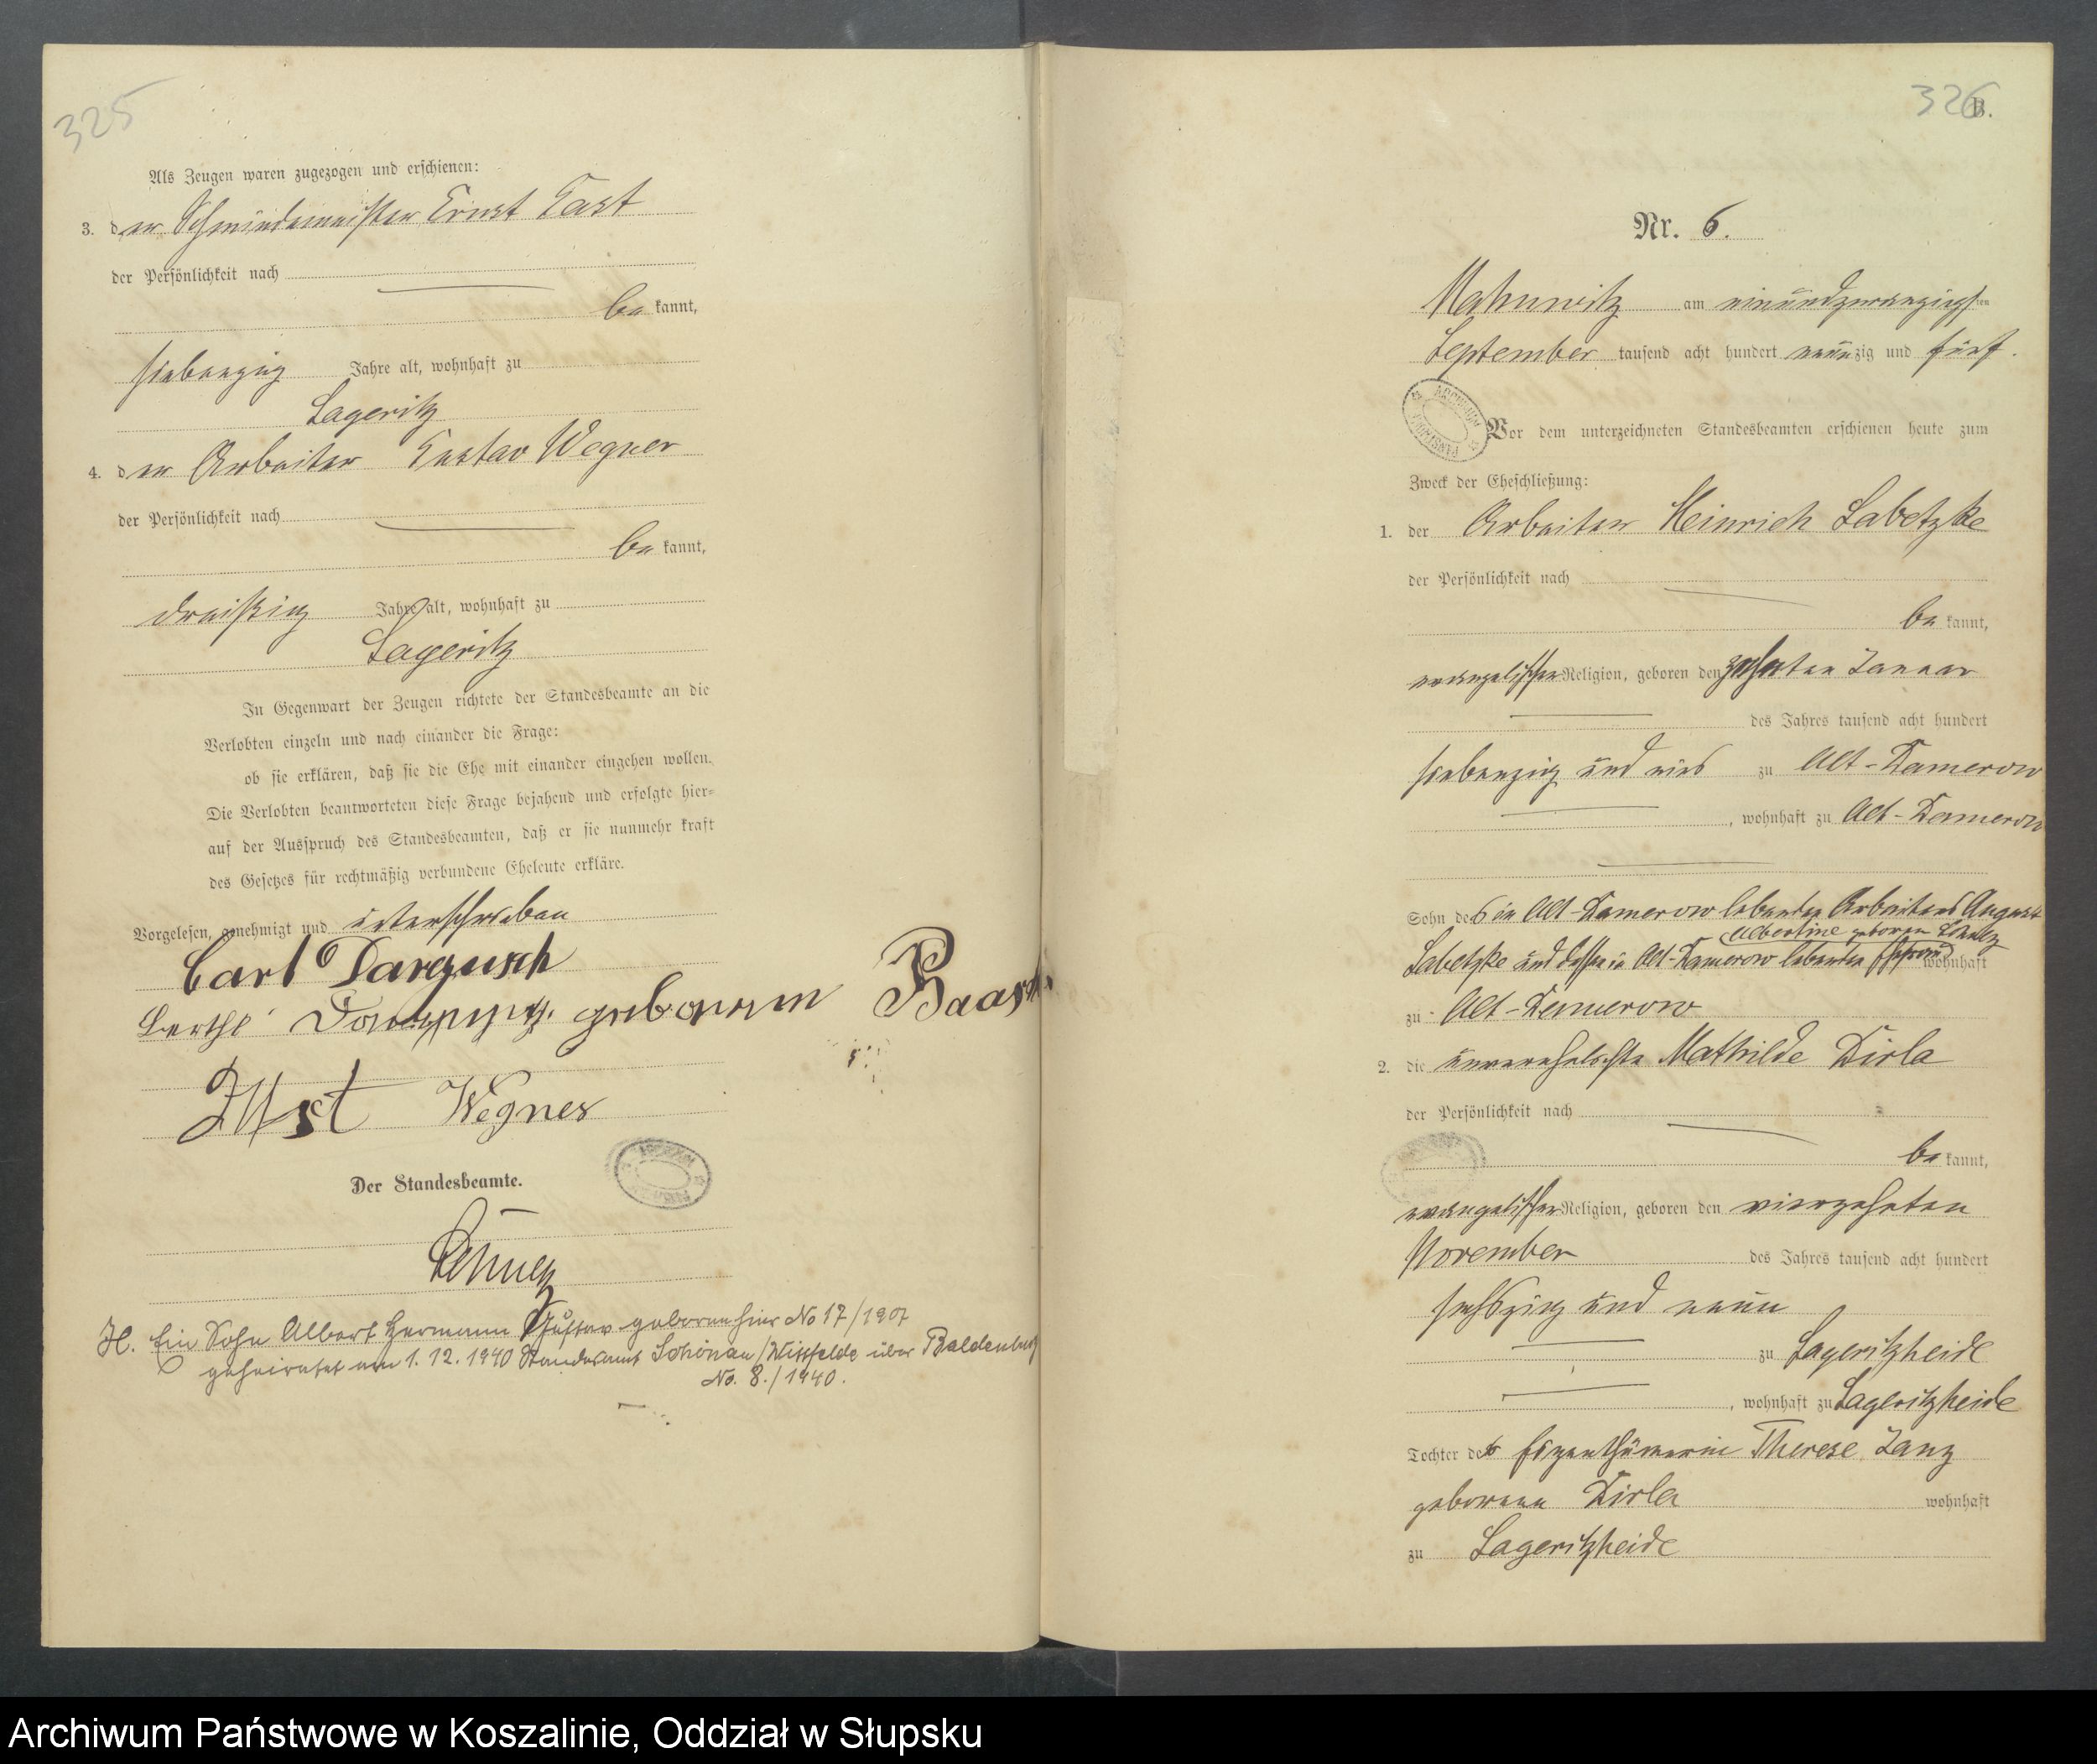 325
Als Zeugen waren zugezogen und erschienen:
3. der Schmiedemeister Ernst Tast
der Persönlichkeit nach
be kannt,
siebenzig Jahre alt, wohnhaft zu
Lageritz
4. der Arbeiter Gustav Wegner
der Persönlichkeit nach
be kannt,
dreißig Jahre alt, wohnhaft zu
Lageritz
In Gegenwart der Zeugen richtete der Standesbeamte an die
Verlobten einzeln und nach einander die Frage:
ob sie erklären, daß sie die Ehe mit einander eingehen wollen.
Die Verlobten beantworteten diese Frage bejahend und erfolgte hier-
auf der Ausspruch des Standesbeamten, daß er sie nunmehr kraft
des Gesetzes für rechtmäßig verbundene Eheleute erkläre.
Vorgelesen, genehmigt und unterschrieben
Carl Dargusch
geborenen Baasch
Wegner
Der Standesbeamte.
H. Ein Sohn Albert Hermann Gustav geboren hier No 17/1907
geheiratet am 1. 12. 1940 Standesamt Schönau/Wittfelde über Baldenburg
No. 8./1940.
326
B.
Nr. 6.
Mahnwitz am einundzwanzigsten
September tausend acht hundert neunzig und fünf.
Vor dem unterzeichneten Standesbeamten erschienen heute zum
Zweck der Eheschließung:
1. der Arbeiter Heinrich Labetzke
der Persönlichkeit nach
be kannt,
evangelischer Religion, geboren den zehnten Januar
des Jahres tausend acht hundert
siebenzig und eins zu Alt-Damerow
, wohnhaft zu Alt-Damerow
Sohn des in Alt-Damerow lebenden Arbeiters August
Albertine geboren
Labetzke und dessen in Alt-Damerow lebenden Ehefrau wohnhaft
zu Alt-Damerow
2. die unverehelichte Mathilde Dirla
der Persönlichkeit nach
be kannt,
evangelischer Religion, geboren den vierzehnten
November des Jahres tausend acht hundert
sechszig und neun
zu Lageritzheide
, wohnhaft zu Lageritzheide
Tochter der Eigenthümerin Therese Janz
geborene Dirla wohnhaft
zu Lageritzheide
Archiwum Państwowe w Koszalinie, Oddział w Słupsku